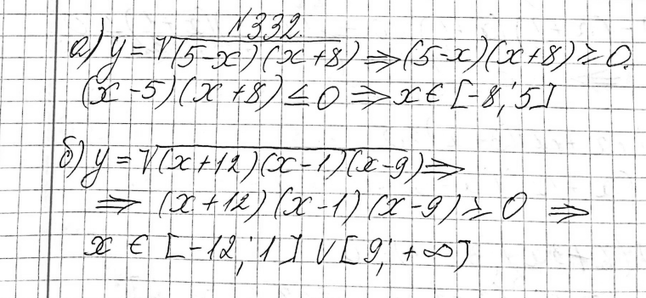 №332.
а) y = √(5-x)(x+8) ⇒ (5-x)(x+8) ≥ 0.
(x-5)(x+8) ≤ 0 ⇒ x ∈ [-8; 5]
б) y = √(x+12)(x-1)(x-9) ⇒
⇒ (x+12)(x-1)(x-9) ≥ 0 ⇒
x ∈ [-12; 1] ∨ [9; +∞)